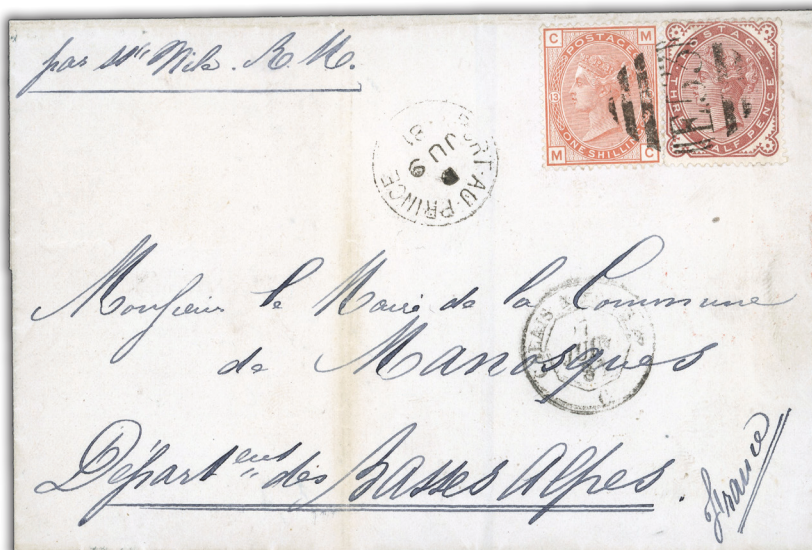 par Str Nile. R. M.
C POSTAGE M
13
ONE SHILLING
M C
POSTAGE
THREE HALF PENCE
PORT-AU-PRINCE
JU 9
81
Monsieur le Maire de la Commune
de Manosques
CALAIS A
Départ ent des Basses Alpes.
France